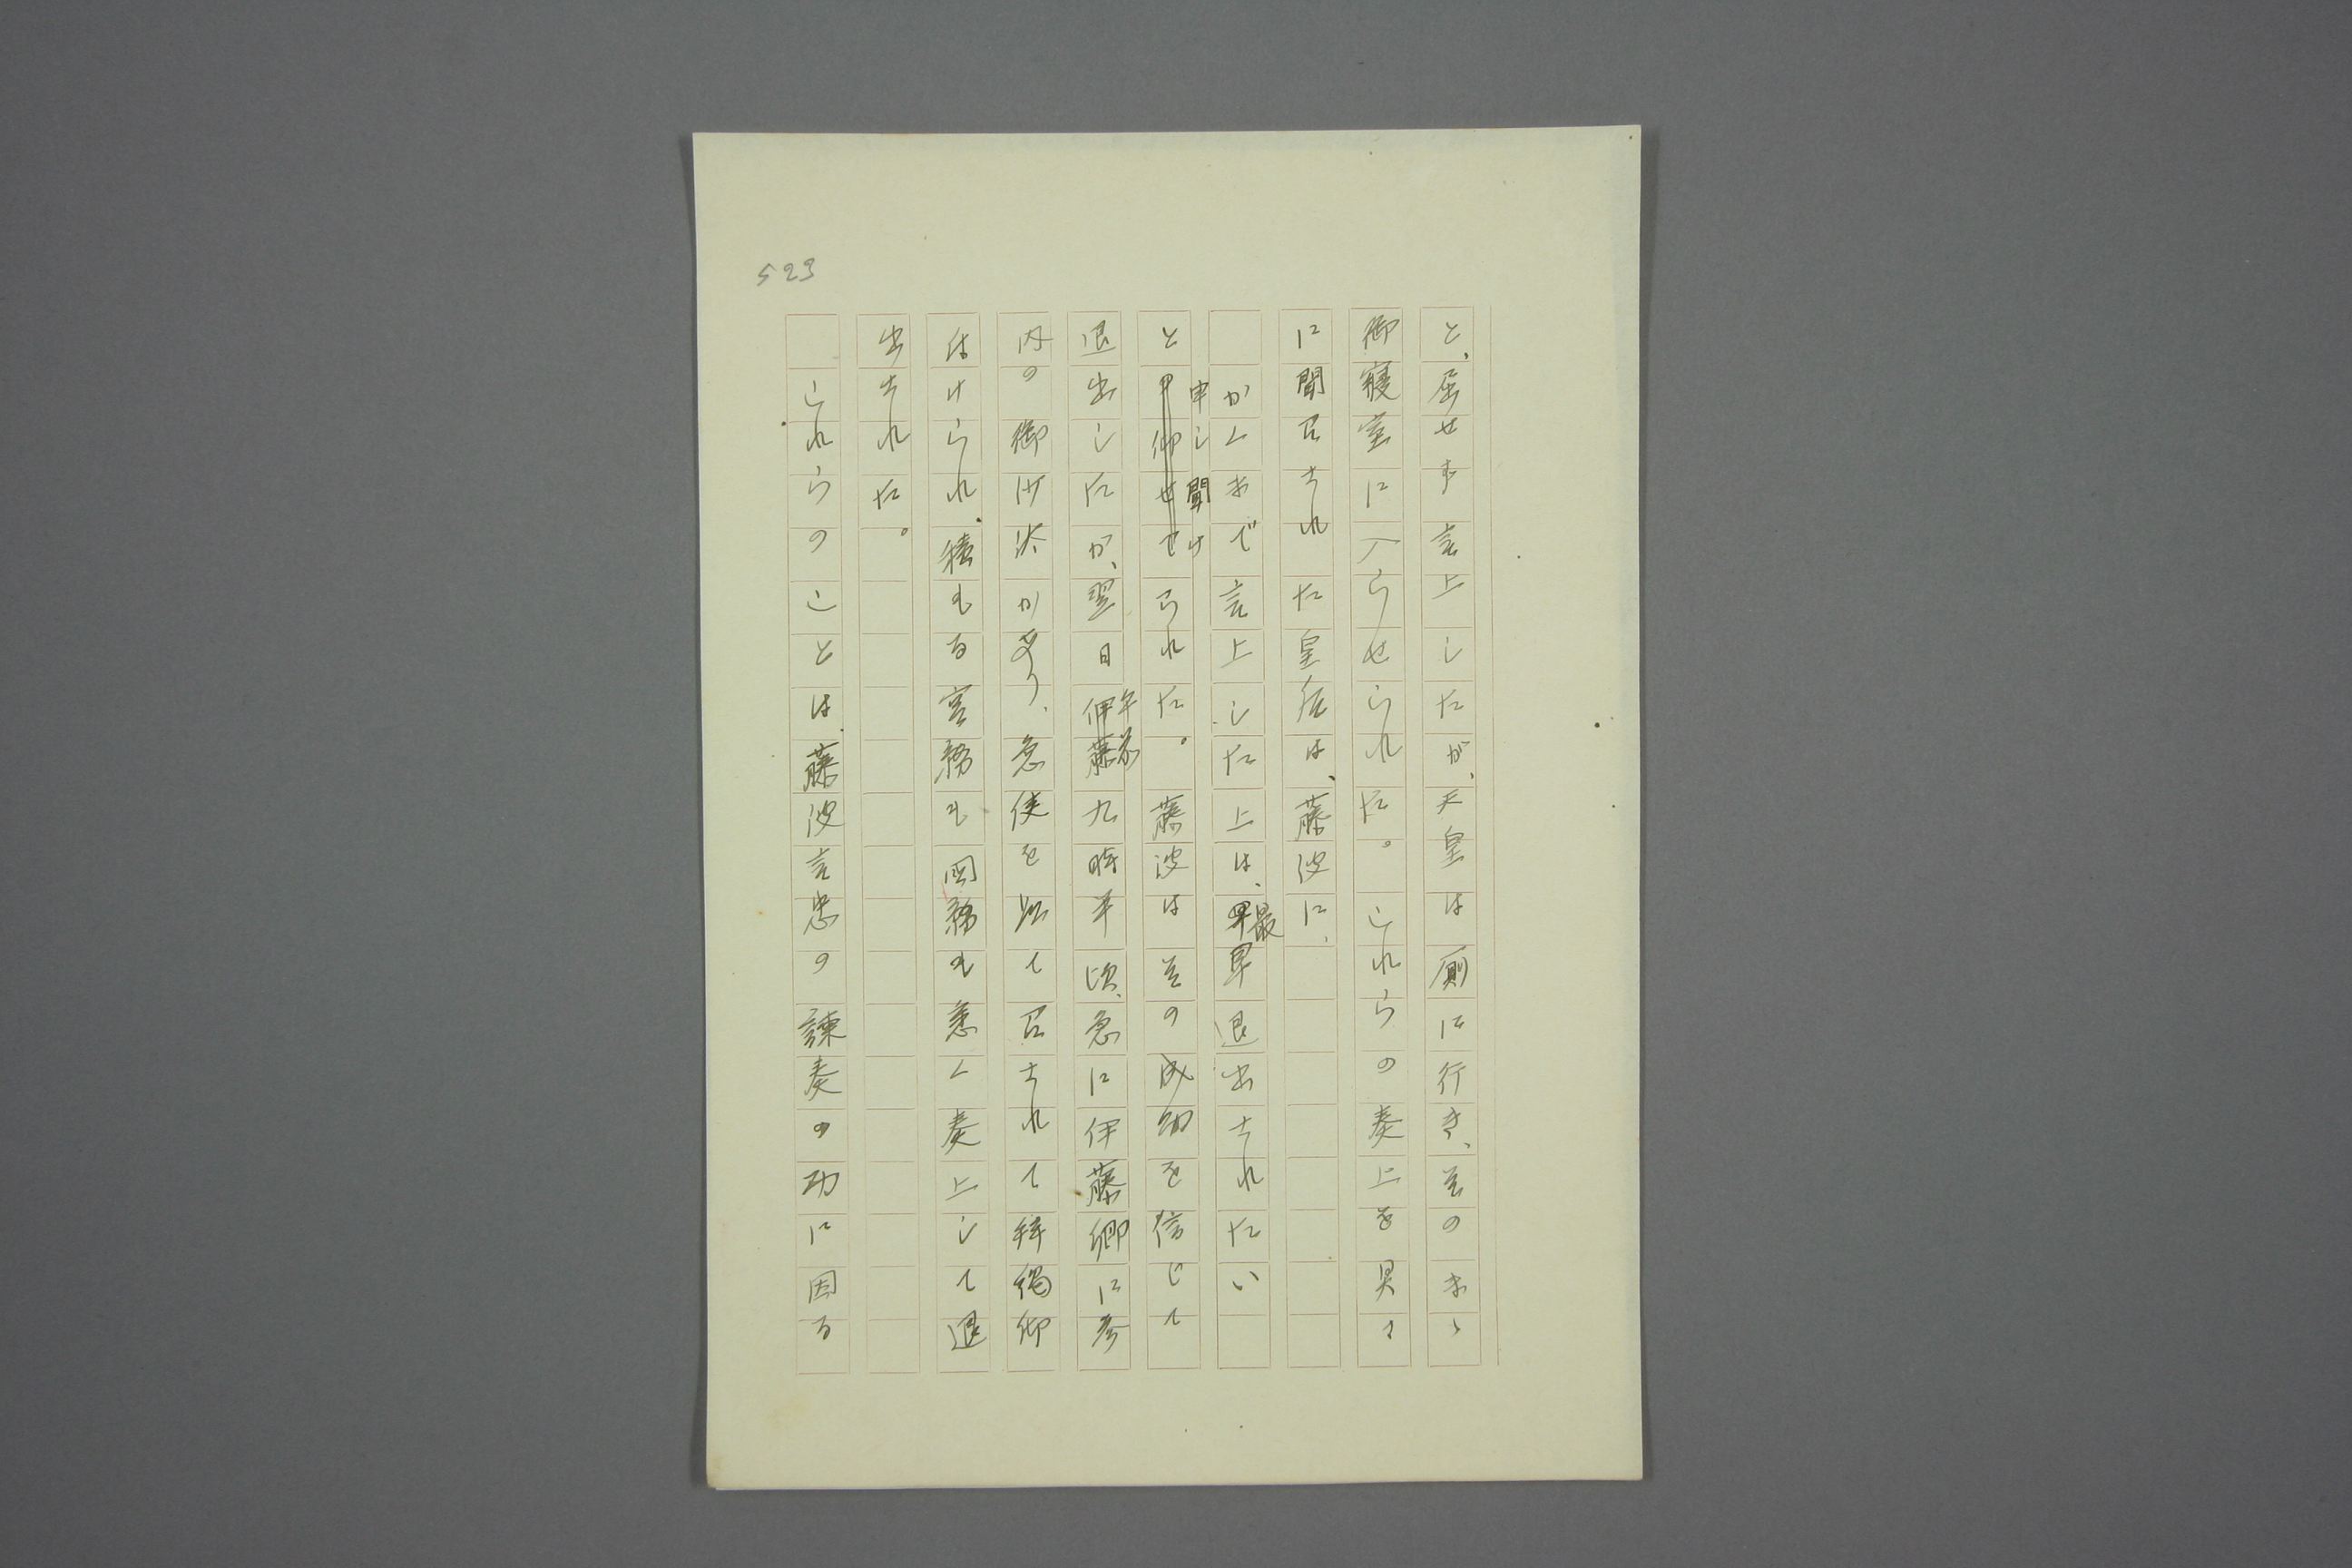 523
と、屈せず言上したが、天皇は厠に行き、その まゝ
御寝室に入らせられた。これらの奏上を具さ
に聞召された皇后は、藤波に、
かくまで言上した上は、最早退出されたい
と申し聞けられた。藤波はその成功を信じて
退出したが、翌日午前九時半頃、急に伊藤卿に参
内の御沙汰があり、急使を以て召されて拝謁仰
付けられ、積もる宮務も国務も悉く奏上して退
出された。
これらのことは、藤波言忠の諫奏の功に因る